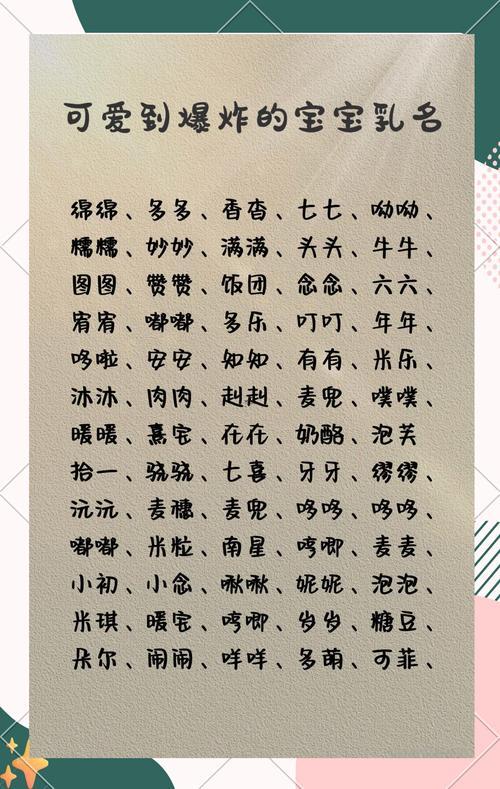 可爱到爆炸的宝宝乳名
绵绵、多多、香香、七七、呦呦、
糯糯、妙妙、满满、头头、牛牛、
图图、赞赞、饭团、念念、六六、
宥宥、嘟嘟、多乐、叮叮、年年、
哆啦、安安、如如、有有、米乐、
沐沐、肉肉、赳赳、麦兜、噗噗、
暖暖、熹宝、在在、奶酪、泡芙
拾一、骁骁、七喜、牙牙、缪缪、
沅沅、麦穗、麦兜、哆哆、哆哆、
嘟嘟、米粒、南星、哼唧、麦麦、
小初、小念、啾啾、妮妮、泡泡、
米琪、暖宝、哼唧、岁岁、糖豆、
朵尔、闹闹、咩咩、多萌、可菲、